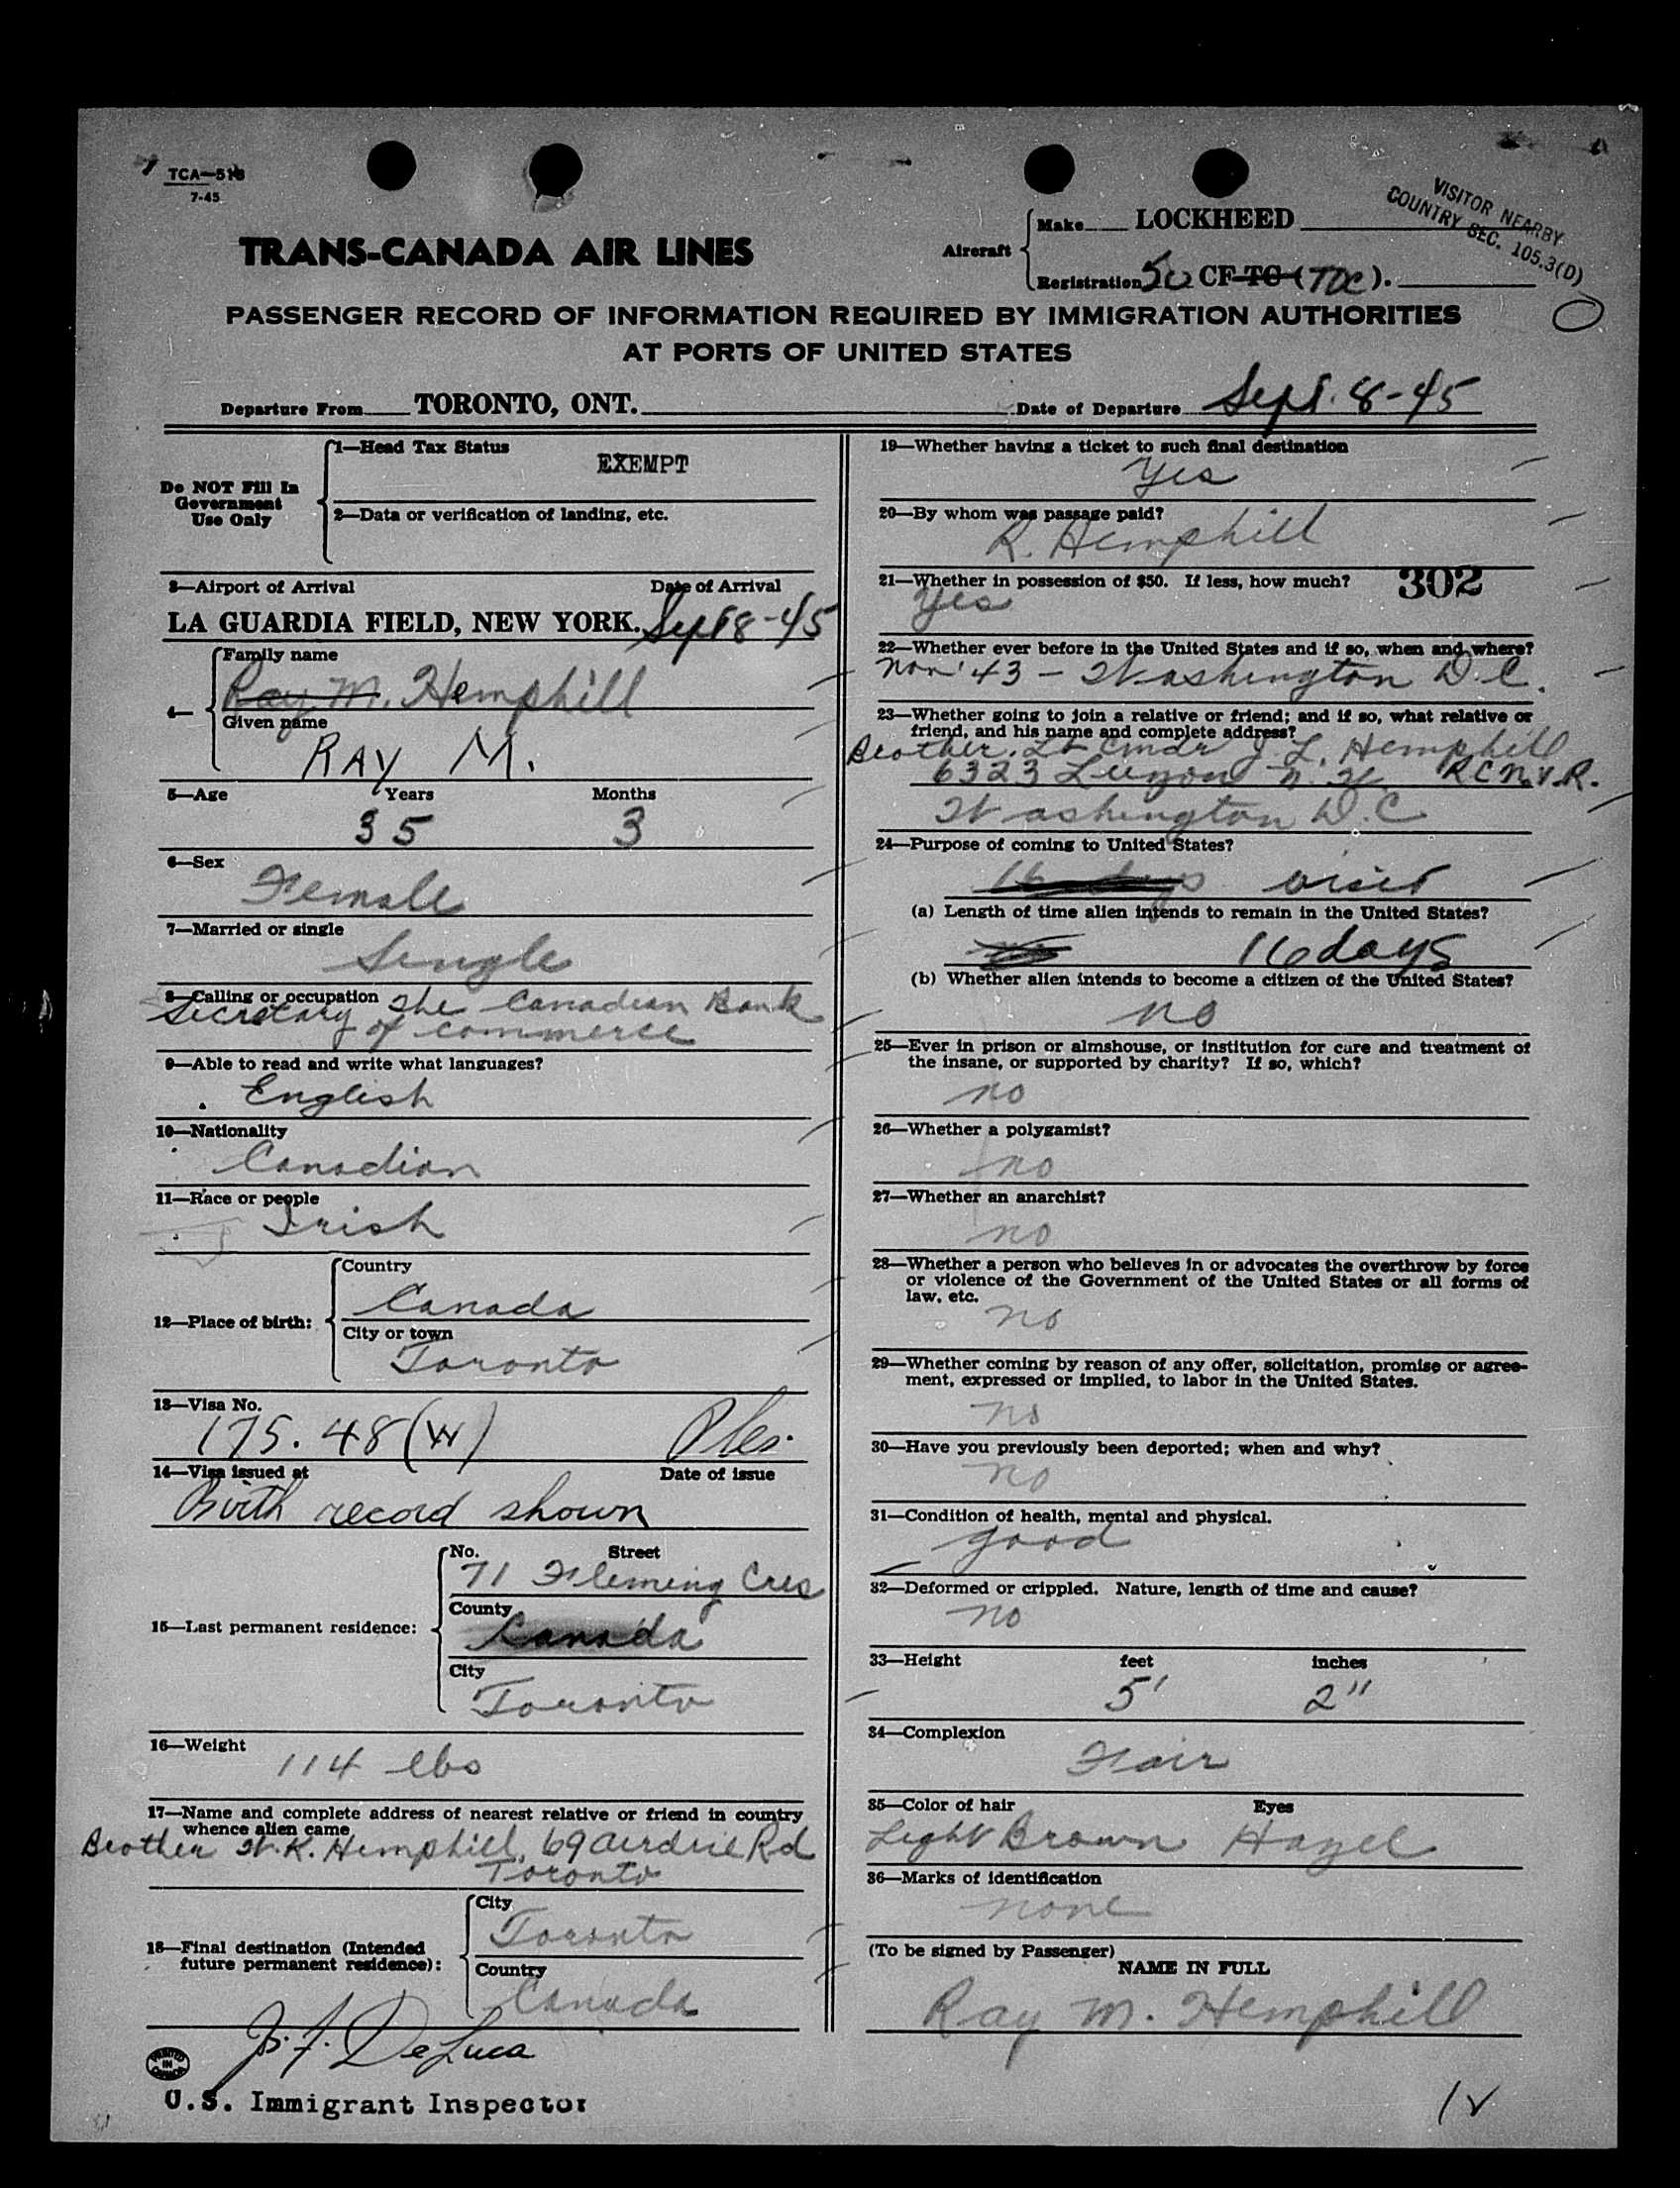 TCA—518
7-45
VISITOR NEARBY
COUNTRY SEC. 105.3(D)
TRANS-CANADA AIR LINES
Aircraft
Make LOCKHEED
Registration 50 CF-TC (TDC).
PASSENGER RECORD OF INFORMATION REQUIRED BY IMMIGRATION AUTHORITIES
AT PORTS OF UNITED STATES
Departure From TORONTO, ONT. Date of Departure Sept. 8-45
Do NOT Fill In
Government
Use Only
1—Head Tax Status
EXEMPT
2—Data or verification of landing, etc.
3—Airport of Arrival Date of Arrival
LA GUARDIA FIELD, NEW YORK. Sept 8-45
4—
Family name
Ray M. Hemphill
Given name
RAY M.
5—Age Years Months
35 3
6—Sex
Female
7—Married or single
Single
8—Calling or occupation The Canadian Bank
Secretary of Commerce
9—Able to read and write what languages?
English
10—Nationality
Canadian
11—Race or people
Irish
12—Place of birth:
Country
Canada
City or town
Toronto
13—Visa No.
175.48(W)
14—Visa issued at Date of issue
Birth record shown
15—Last permanent residence:
No. Street
71 Fleming Cres
County
Canada
City
Toronto
16—Weight
114 lbs
17—Name and complete address of nearest relative or friend in country
whence alien came
Brother W.K. Hemphill, 69 Airdrie Rd
Toronto
18—Final destination (Intended
future permanent residence):
City
Toronto
Country
Canada
J. F. DeLuca
PRINTED IN CANADA
U.S. Immigrant Inspector
19—Whether having a ticket to such final destination
Yes
20—By whom was passage paid?
R. Hemphill
21—Whether in possession of $50. If less, how much? 302
Yes
22—Whether ever before in the United States and if so, when and where?
Nov '43 – Washington D.C.
23—Whether going to join a relative or friend; and if so, what relative or
friend, and his name and complete address?
Brother. Lt Cmdr J. L. Hemphill
6323 Luzon N.W. R.C.N.V.R.
Washington D.C
24—Purpose of coming to United States?
16 days visit
(a) Length of time alien intends to remain in the United States?
16 days
(b) Whether alien intends to become a citizen of the United States?
no
25—Ever in prison or almshouse, or institution for care and treatment of
the insane, or supported by charity? If so, which?
no
26—Whether a polygamist?
no
27—Whether an anarchist?
no
28—Whether a person who believes in or advocates the overthrow by force
or violence of the Government of the United States or all forms of
law, etc.
no
29—Whether coming by reason of any offer, solicitation, promise or agree-
ment, expressed or implied, to labor in the United States.
no
30—Have you previously been deported; when and why?
no
31—Condition of health, mental and physical.
good
32—Deformed or crippled. Nature, length of time and cause?
no
33—Height feet inches
5' 2"
34—Complexion
Fair
35—Color of hair Eyes
Light Brown Hazel
36—Marks of identification
none
(To be signed by Passenger)
NAME IN FULL
Ray M. Hemphill